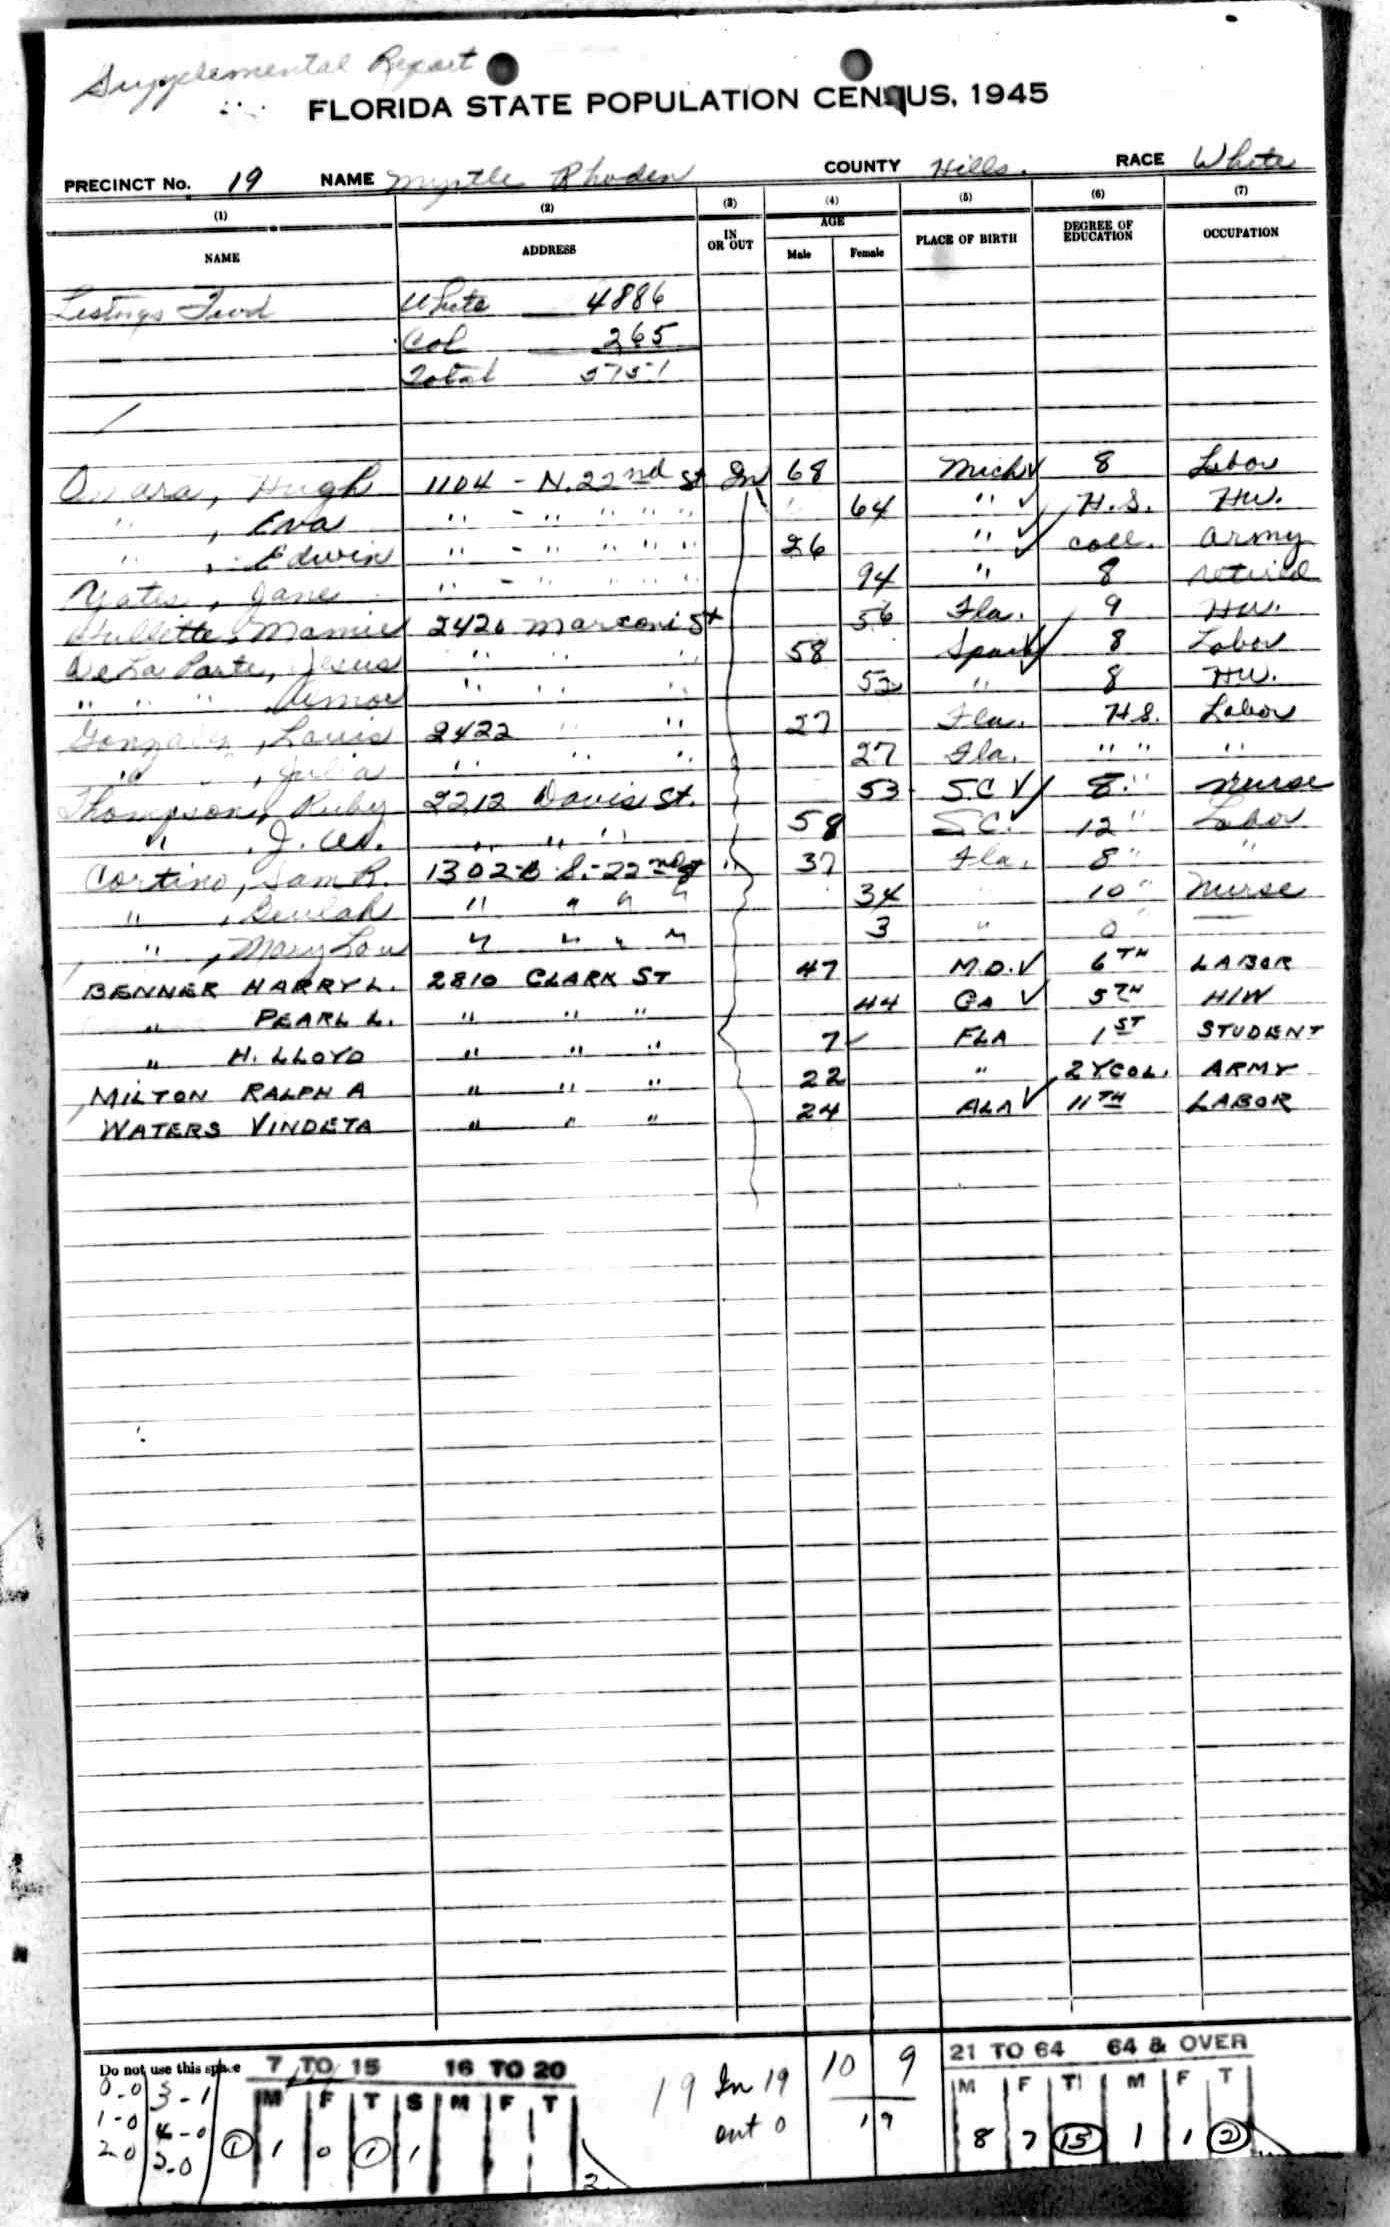 Supplemental Report
FLORIDA STATE POPULATION CENSUS, 1945
PRECINCT No. 19 NAME Myrtle Rhoden COUNTY Hills. RACE White
(1) (2) (3) (4) (5) (6) (7)
NAME ADDRESS IN OR OUT AGE Male Female PLACE OF BIRTH DEGREE OF EDUCATION OCCUPATION
Listings White 4886
Col 265
Total 5151
Hugh 1104 - N. 22nd St In 68 Mich ✓ 8 Labor
" , Eva " - " " " " 64 " ✓ H.S. HW.
" , Edwin " - " " " " 26 " ✓ Coll. Army
Yates, Jane " - " " " " 94 " 8 retired
Mamie 2420 Marconi St 56 Fla. 9 HW.
De La Parte, Jesus " " " 58 Spain ✓ 8 Labor
" " " " " " 53 " 8 HW.
Gonzalez, Louis 2422 " " 27 Fla. H.S. Labor
" , Julia " " " 27 Fla. " " "
Thompson, Ruby 2212 Davis St. 53 S.C ✓ 8 " Nurse
" , J. W. " " " 58 S.C. ✓ 12 " Labor
Cortino, Sam R. 1302-B S.-22nd St " 37 Fla. 8 " "
" , Beulah " " " " 34 10 " Nurse
" , Mary Lou " " " " 3 " 0 —
BENNER HARRY L. 2810 CLARK ST 47 M.D. ✓ 6TH LABOR
" PEARL L. " " " 44 GA ✓ 5TH H/W
" H. LLOYD " " " 7 ✓ FLA 1ST STUDENT
MILTON RALPH A " " " 22 " 2YCOL. ARMY
WATERS VINDETA " " " 24 ALA ✓ 11TH LABOR
Do not use this space
7 TO 15 16 TO 20
M F T S M F T
0-0 3-1
1-0 4-0
2 0 5-0
1 1 0 1 1
2
19 In 19
out 0
10 9
19
21 TO 64 64 & OVER
M F T M F T
8 7 15 1 1 2